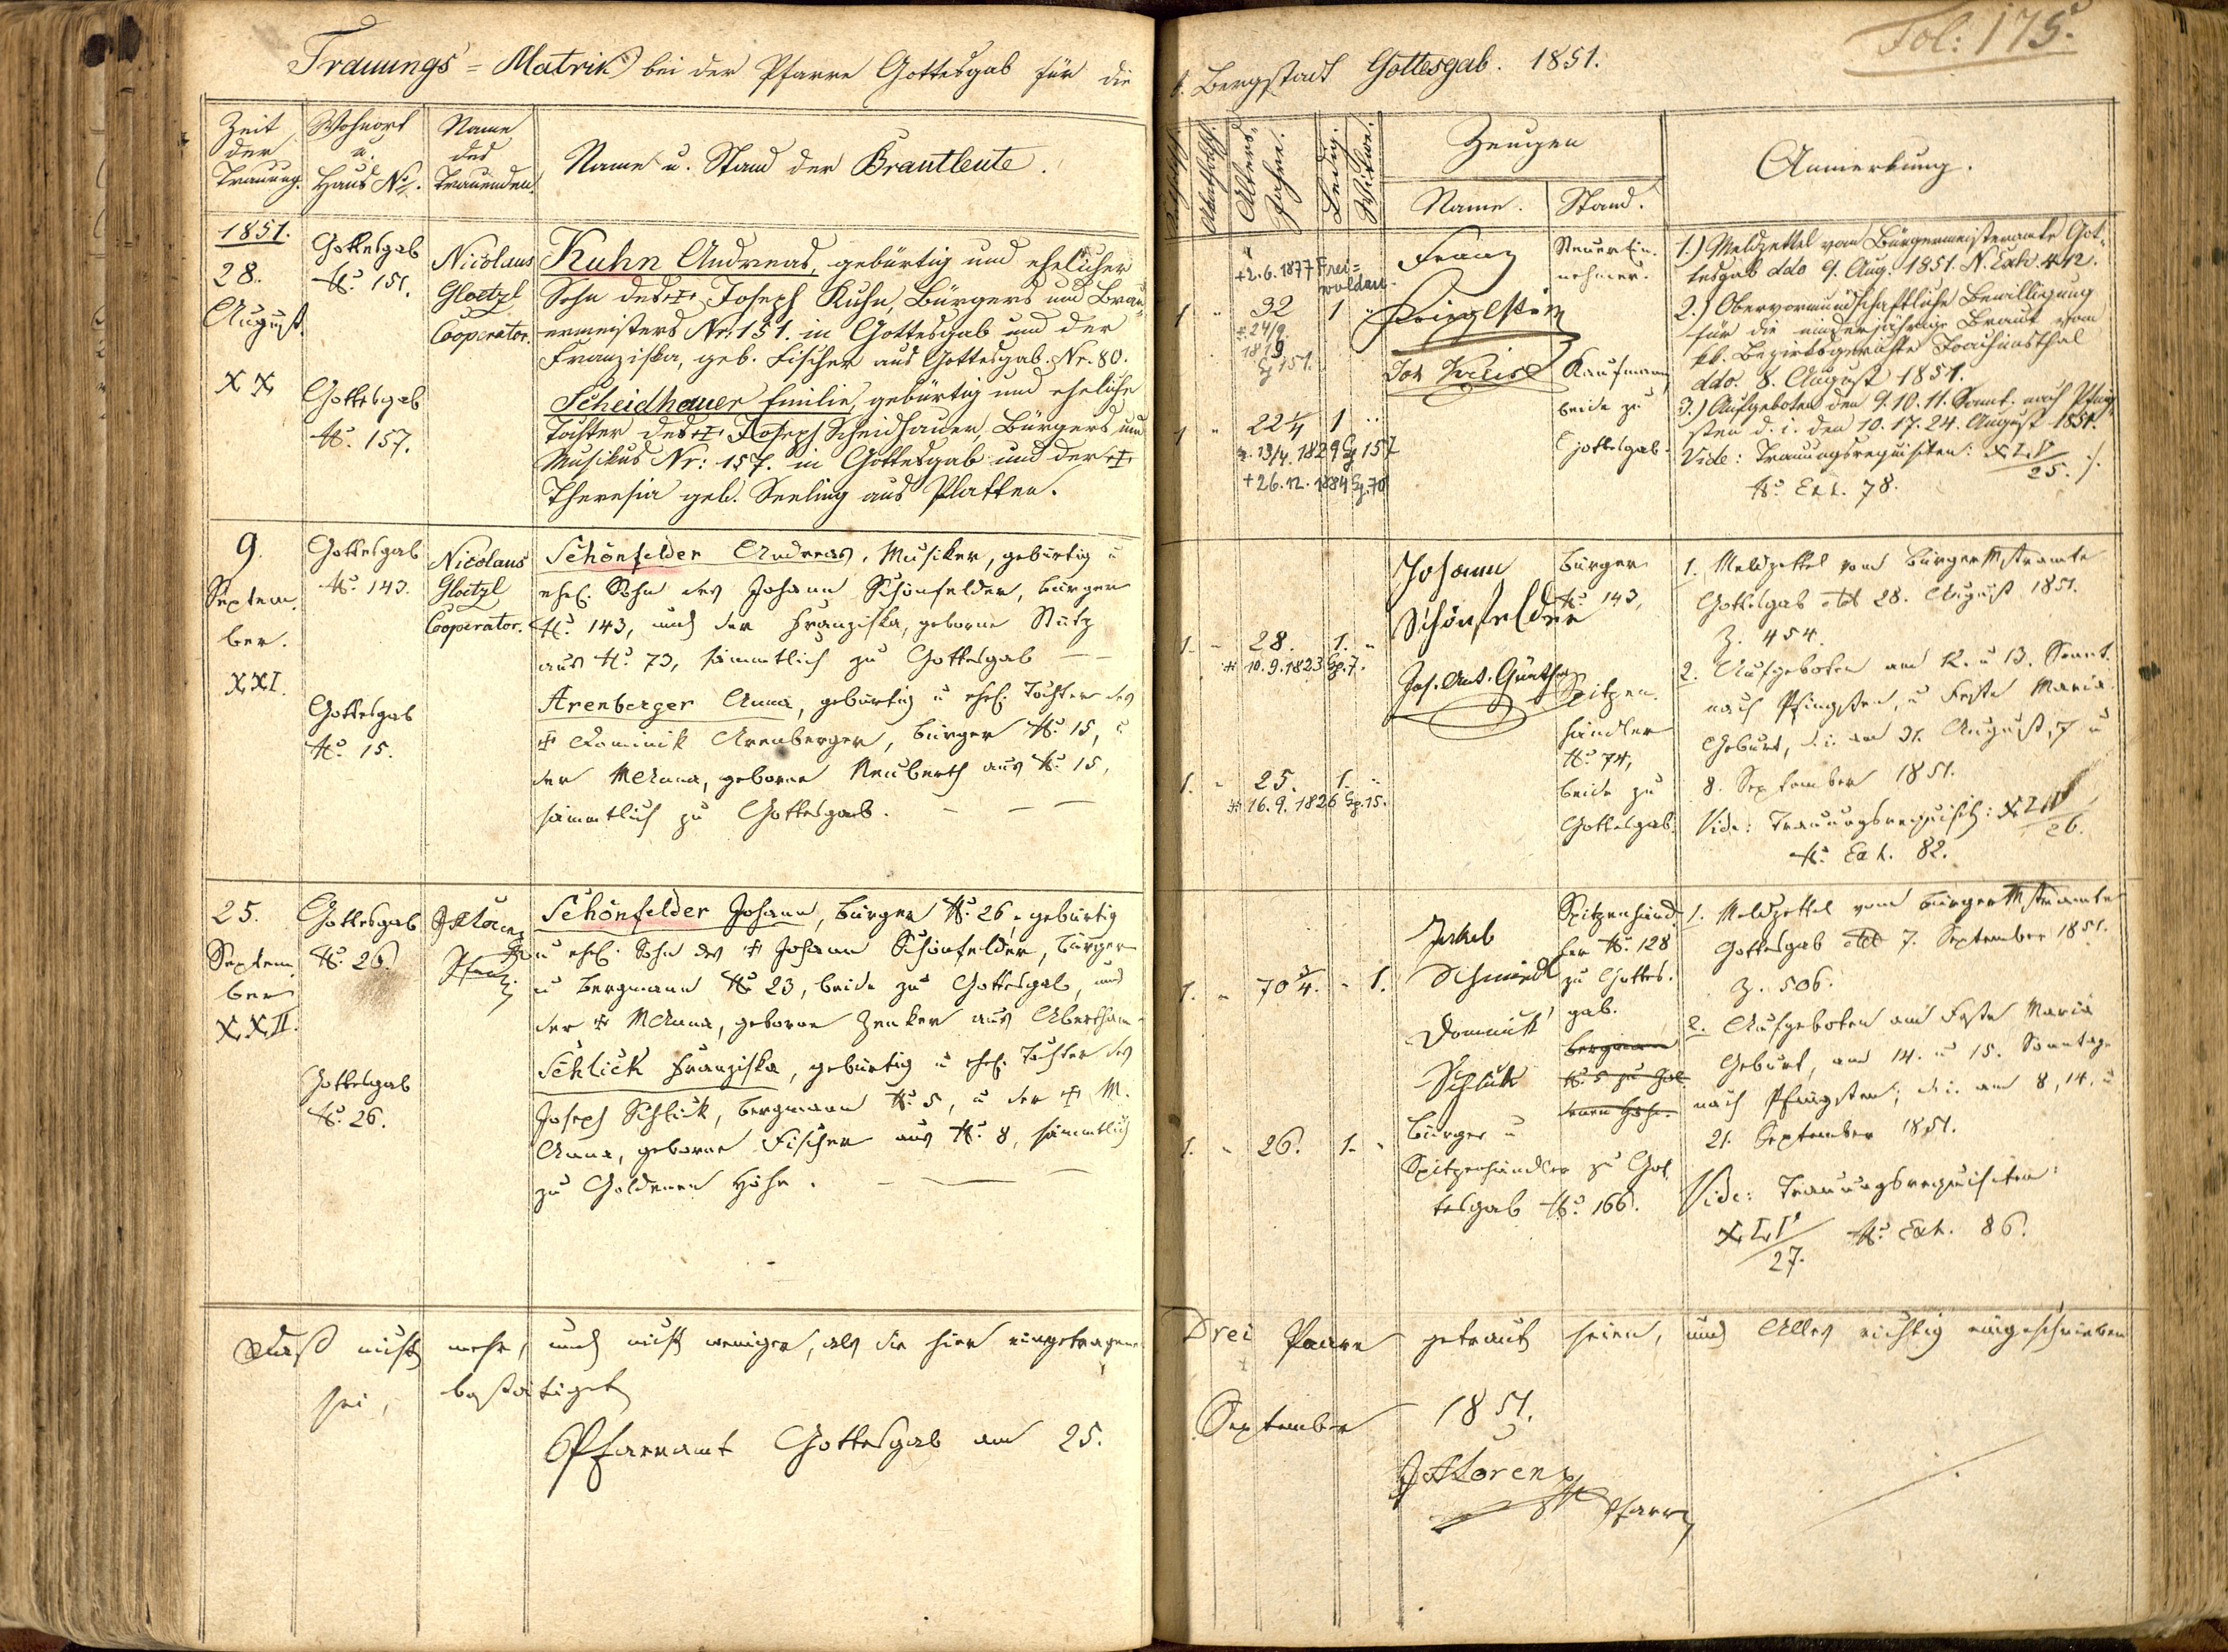 Trauungs=Matrik bei der Pfarre Gottesgab für die
Zeit der Trauung.
Wohnort u. Haus No.
Name des Trauenden
Name u. Stand der Brautleute.
1851.
28.
August
XX
Gottesgab
No. 151.
Gottesgab
No. 157.
Nicolaus
Gloetzl
Cooperator.
Kuhn Andreas, gebürtig und ehelicher
Sohn des Joseph Kuhn, Bürgers und Brau-
ermeisters Nr. 151. in Gottesgab und der
Franziska, geb. Fischer aus Gottesgab. Nr. 80.
Scheidhauer Emilie, gebürtig und eheliche
Tochter des Joseph Scheidhauer, Bürgers und
Musikus Nr: 157. in Gottesgab und der
Theresia geb. Seeling aus Platten.
9.
Septem-
ber.
XXI.
Gottesgab
No. 143.
Gottesgab
No. 15.
Nicolaus
Gloetzl
Cooperator.
Schönfelder Andreas, Musiker, gebürtig u
ehel. Sohn des Johann Schönfelder, Bürger
No. 143, und der Franziska, geborne Stütz
aus No. 73, sämmtlich zu Gottesgab
Arenberger Anna, gebürtig u ehel. Tochter des
Dominik Arenberger, Bürger No. 15, u
der MAnna, geborne Neuberth aus No. 15,
sämmtlich zu Gottesgab.
25.
Septem-
ber
XXII.
Gottesgab
No. 26.
Gottesgab
No. 26.
Schönfelder Johann, Bürger No. 26, gebürtig
u ehel. Sohn des Johann Schönfelder, Bürger
u Bergmann No 23, beide zu Gottesgab, und
der MAnna, geborne Zenker aus Abertham
Schlick Franziska, gebürtig u ehel. Tochter des
Joseph Schlick, Bergmann No. 5, u der M.
Anna, geborne Fischer aus No. 8, sämmtlich
zu Goldenen Höhe.
Daß nicht mehr, und nicht weniger, als die hier eingetragene
sei, bestätiget
Pfarramt Gottesgab am 25.
Fol: 175.
k. Bergstadt Gottesgab. 1851.
Alters-Jahre.
Ledig.
Witwe.
Zeugen
Name.
Stand.
Anmerkung.
+2.6.1877 Frei=
waldau
1 " 32 1 "
Franz
Steuerein-
nehmer.
Kaufmann
beide zu
Gottesgab.
1 " 22 1/4 1 "
13/4. 1829 157
+26.12.1884 70
1.) Meldzettel vom Bürgermeisteramte Got-
tesgab ddo 9. Aug. 1851. N. Exh 412.
2.) Obervormundschaftliche Bewilligung
für die minderjährige Braut vom
kk. Bezirksgerichte Joachimsthal
ddo. 8. August 1851.
3.) Aufgeboten den 9. 10. 11. Sonnt. nach Pfing-
sten d. i. den 10. 17. 24. August 1851.
Vide: Trauungsrequisiten: XLV/25.
No. Exh. 78.
1. " 28. 1. "
* 10.9.1823 Gg. 7.
1. " 25. 1. "
* 16.9.1826 Gg. 15.
Johann
Schönfelder
Jos. Ant. Günther
Bürger
No. 143,
Spitzen-
händler
No. 74,
beide zu
Gottesgab.
1. Meldzettel vom Bürgermstramte
Gottesgab dd 28. August 1851.
Z. 454.
2. Aufgeboten am 12. u 13. Sonnt.
nach Pfingsten, u Feste Maria
Geburt, d. i. am 31. August, 7 u
8. September 1851.
Vide: Trauungsrequisit: XLV/26.
No. Exh. 82.
1. " 70 3/4. " 1.
1. " 26. 1. "
Jakob
Schmiedl
Dominik
Schlick
Bürger u
Spitzenhändler zu Got-
tesgab No. 166.
Spitzenhänd-
ler No. 128
zu Gottes-
gab.
Bergmann
No. 5 zu Gol-
denen Höhe.
1. Meldzettel vom Bürgermstramte
Gottesgab dd 7. September 1851.
Z. 506.
2. Aufgeboten am Feste Maria
Geburt, am 14. u 15. Sonntage
nach Pfingsten; d. i. am 8, 14. u
21. September 1851.
Vide: Trauungsrequisiten:
XLV/27. No. Exh. 86.
Drei Paare getraut seien, und Alles richtig eingeschrieben
September 1851.
Lorenz
Pfarrer